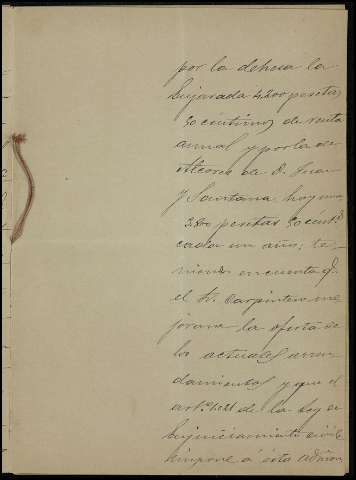 por la dehesa la
Enjarada 4.200 pesetas
50 céntimos de renta
annual y por la de
Alcores de D. Juan
y Santana hoy
3.200 pesetas 50 cent.s
cada un año; te-
niendo en cuenta q.
el Sr. Carpintero me
jorana la oferta de
los actuales arren
damientos y que el
art.º 1.521 de la Ley de
Enjuiciamiento civil
impone á esta admon